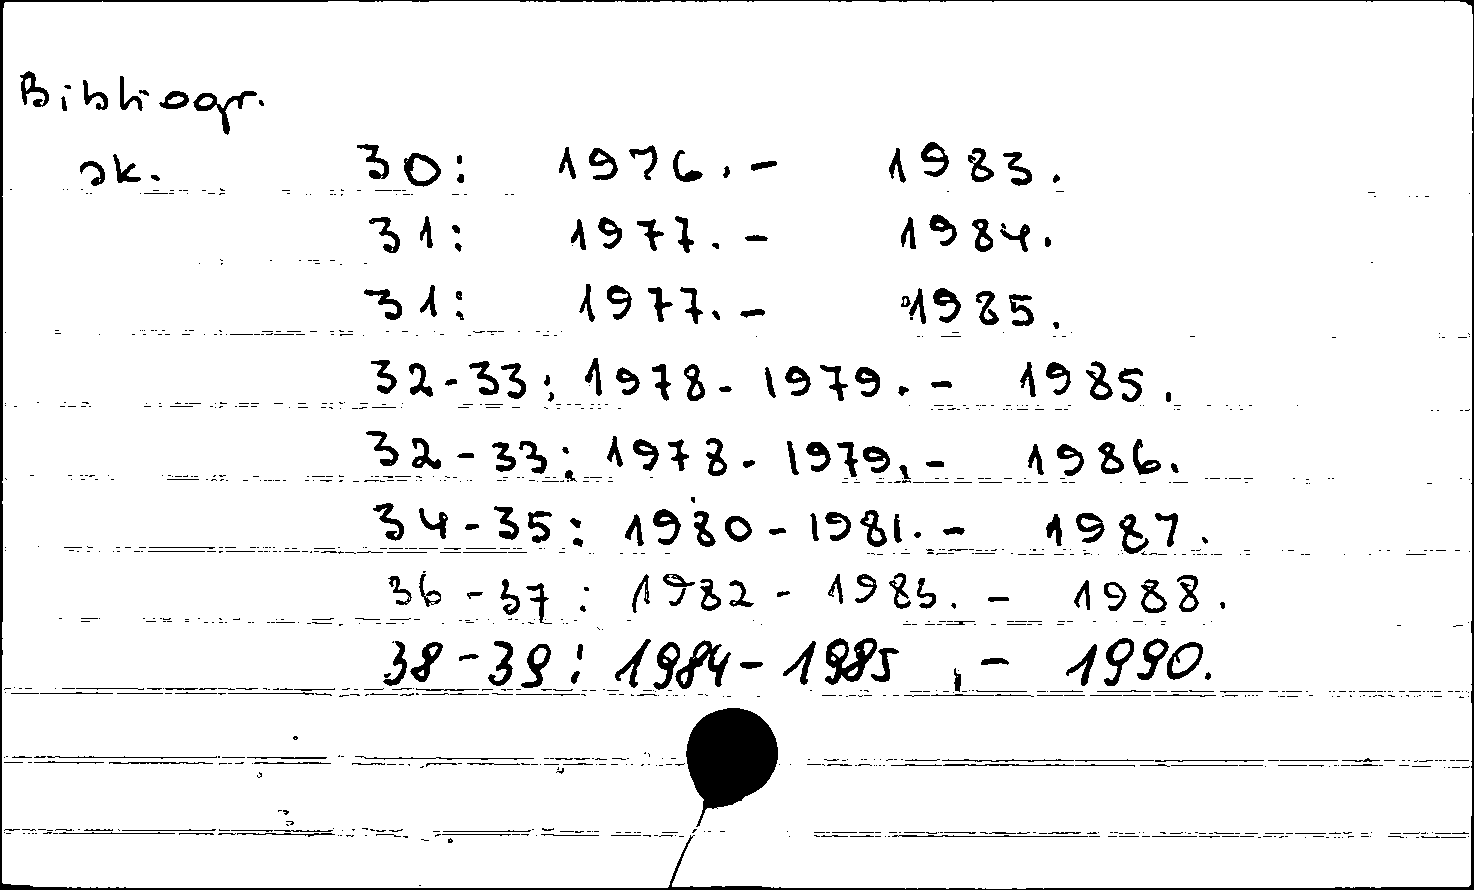 Bibliogr.
ak. 30: 1976.- 1983.
31: 1977.- 1984.
31: 1977.- 1985.
32-33: 1978-1979.- 1985.
32-33: 1978-1979.- 1986.
34-35: 1980-1981.- 1987.
36-37: 1982-1983.- 1988.
38-39: 1984-1985.- 1990.